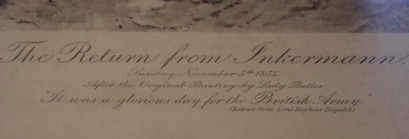 The Return from Inkermann.
Sunday November 5th 1854.
After the Original Painting by Lady Butler
"It was a glorious day for the British Army"
(Extract from Lord Raglans Dispatch)